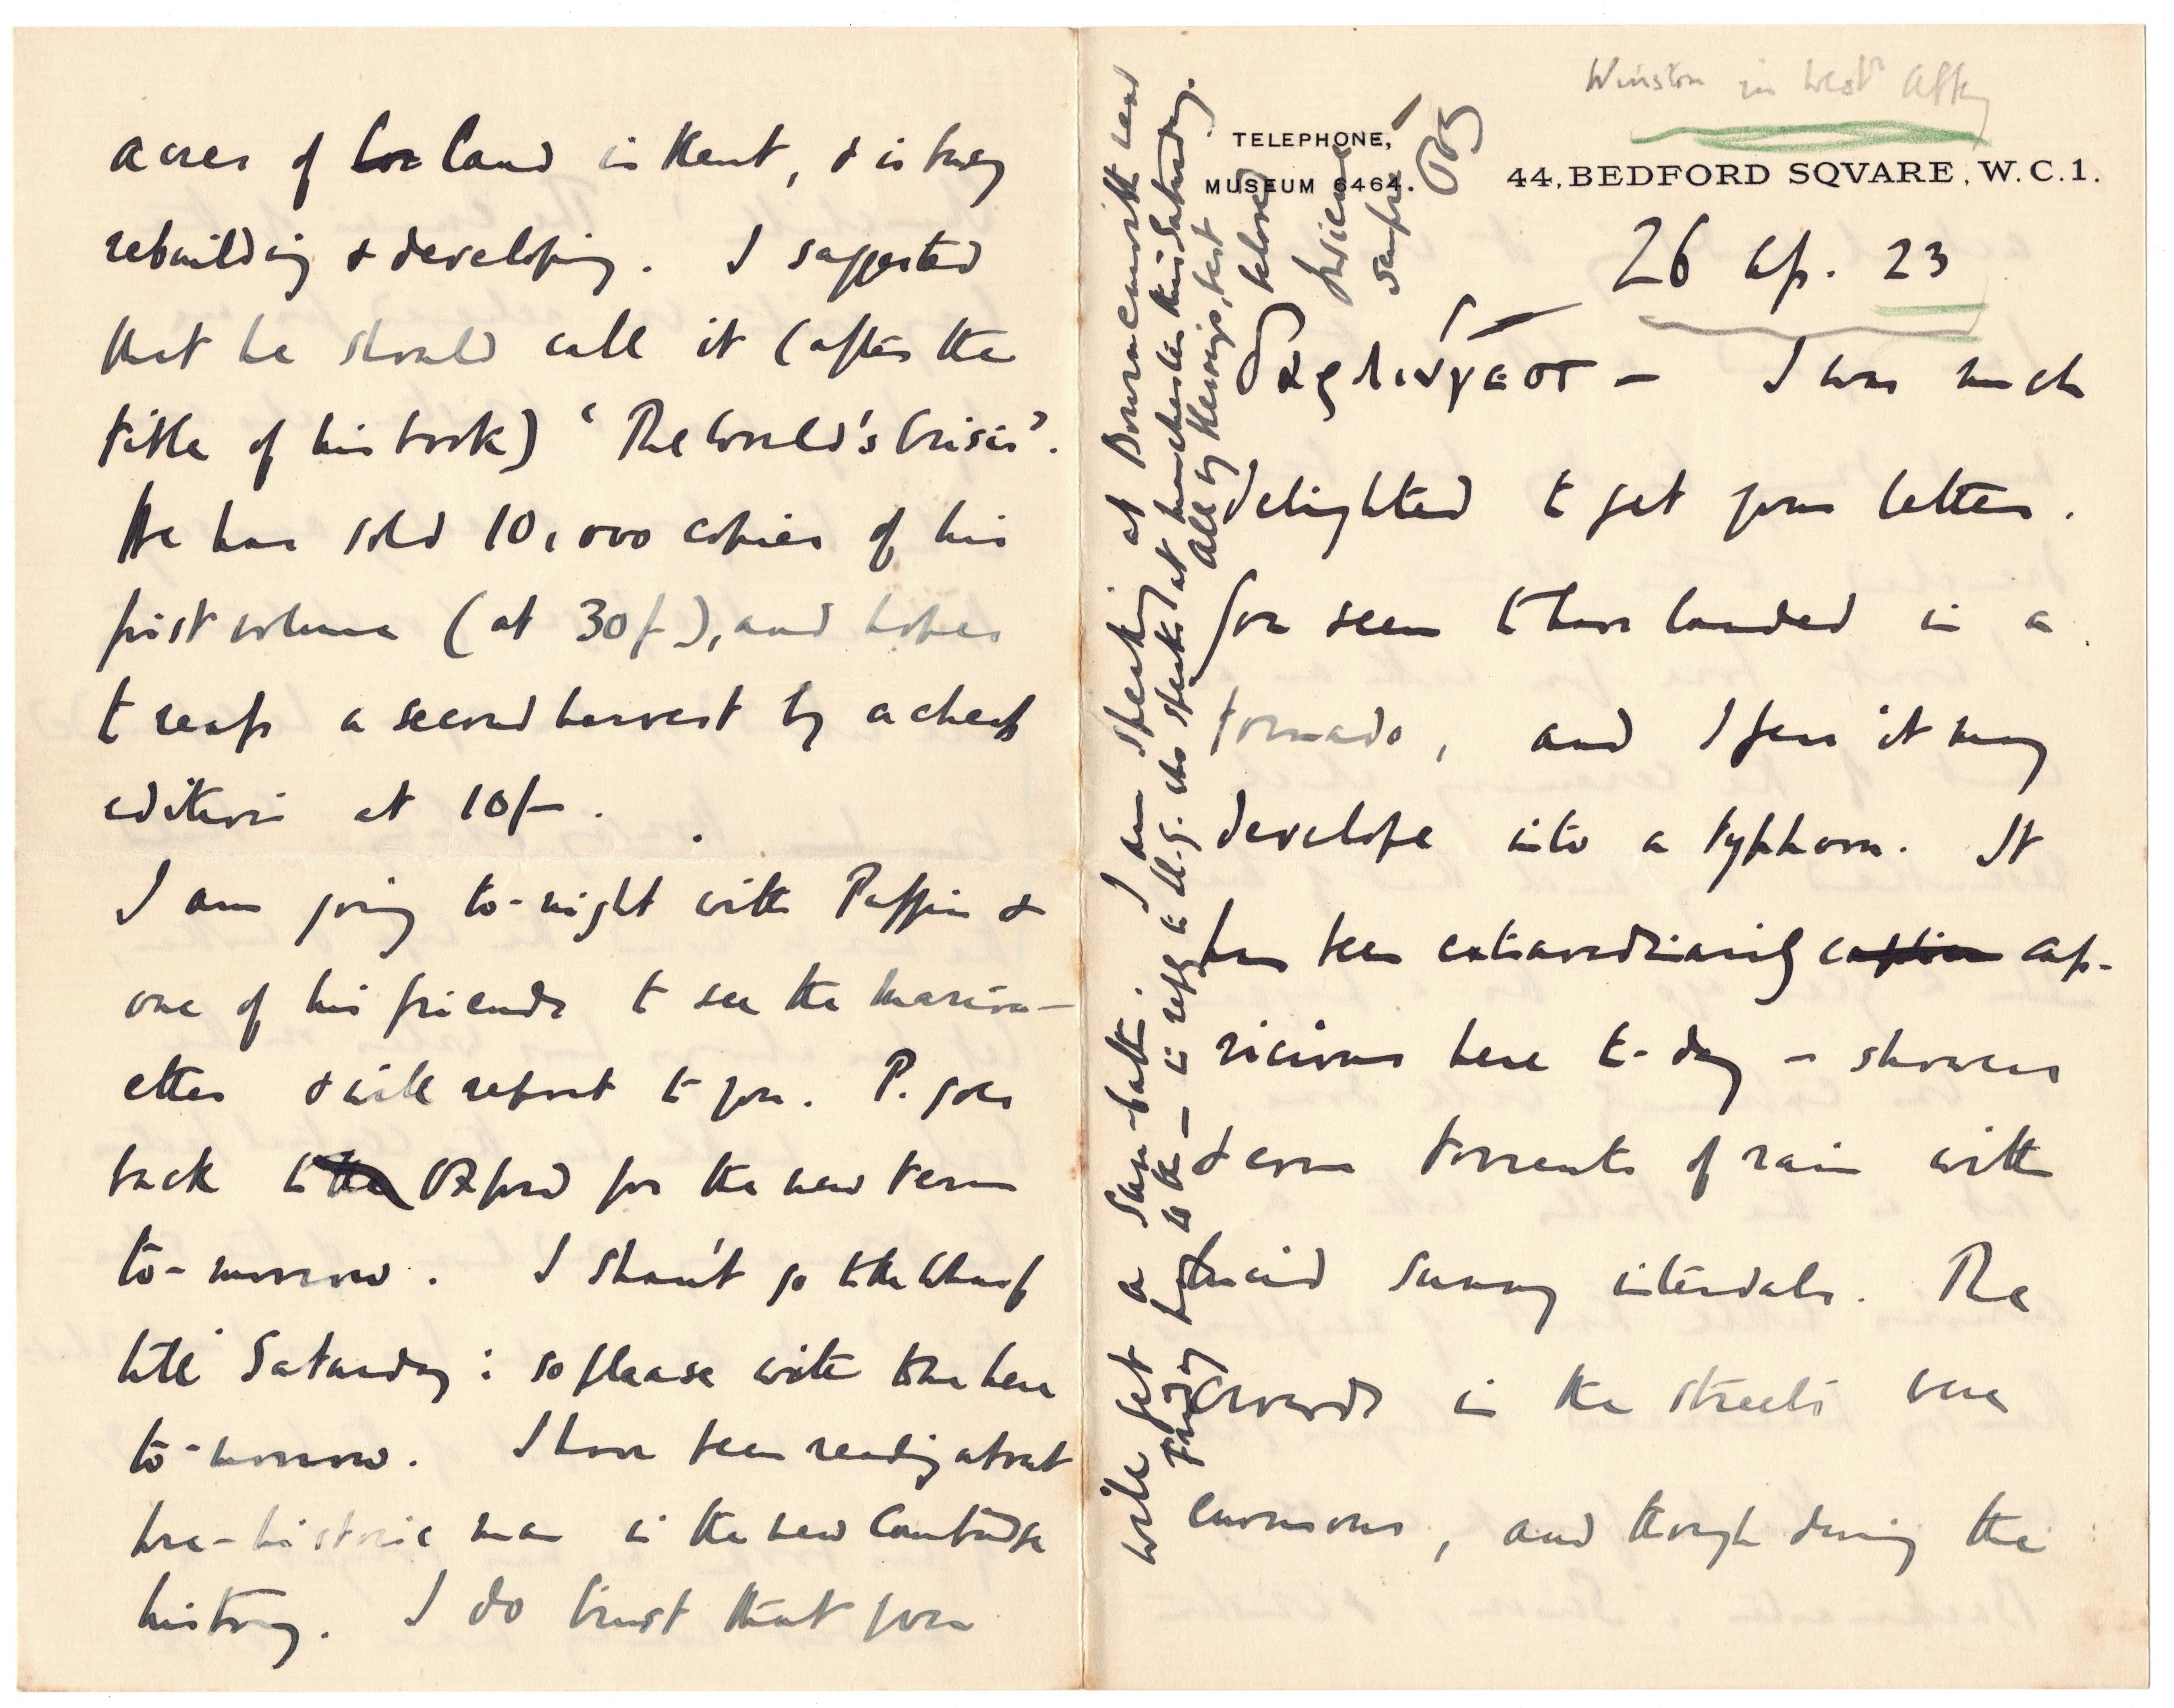 Winston in West Abbey
TELEPHONE,
MUSEUM 6464.
44, BEDFORD SQVARE, W.C.1.
26 Ap. 23
δαρλινγεστ — I was much
delighted to get your letter.
You seem to have landed in a
tornado, and I fear it may
develope into a typhoon. It
has been extraordinarily cap-
ricious here to-day — showers
& even torrents of rain with
lucid sunny intervals. The
crowds in the streets were
enormous, and though during the
acres of land in Kent, & is busy
rebuilding & developing. I suggested
that he should call it (after the
title of his book) 'The World's Crisis'.
He has sold 10,000 copies of his
first volume (at 30/-), and hopes
to reap a second harvest by a cheap
edition at 10/-.
I am going to-night with Puffin &
one of his friends to see the Marion-
ettes & will report to you. P. goes
back to the Oxford for the new term
to-morrow. I shan't go to the Wharf
till Saturday: so please write to me here
to-morrow. I have been reading about
pre-historic man in the new Cambridge
history. I do trust that you
will get a sun-bath. I am speaking at Bournemouth next
Friday to the — in reply to Ll.G. who speaks at Manchester this Saturday.
All my blessings, best
beloved